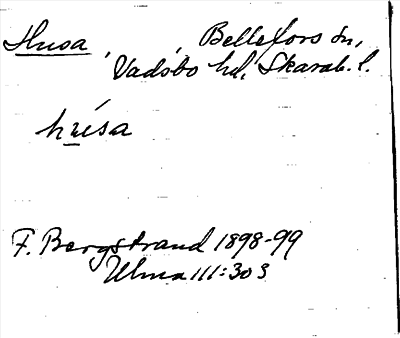 Husa, Bellefors sn,
Vadsbo hd, Skarab. l.
húsa
F. Bergstrand 1898-99
Ulma 111:303